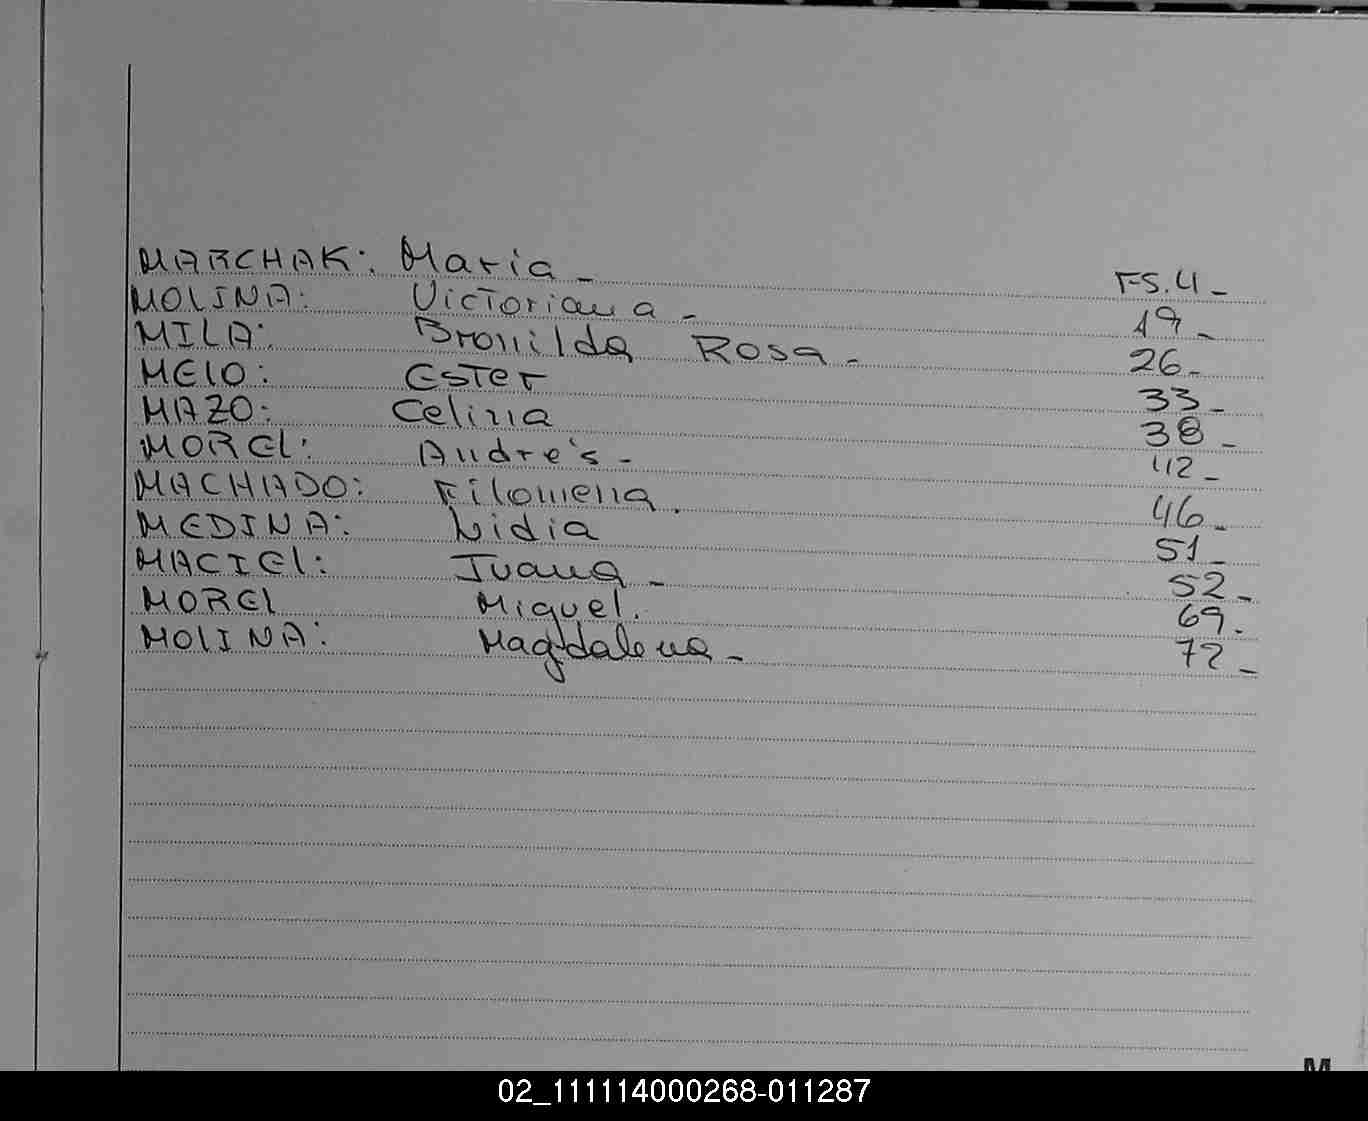 MARCHAK: Maria - FS. 4 -
MOLINA: Victoriana - 19 -
MILA: Bronilda Rosa - 26 -
MElO: Ester 33 -
MAZO: Celina 38 -
MOREl: Andre's - 42 -
MACHADO: Filomena. 46 -
MEDINA: Lidia 51 -
MACIEl: Juana - 52 -
MOREl Miguel. 69.
MOlINA: Magdalena - 72 -
M
02_111114000268-011287